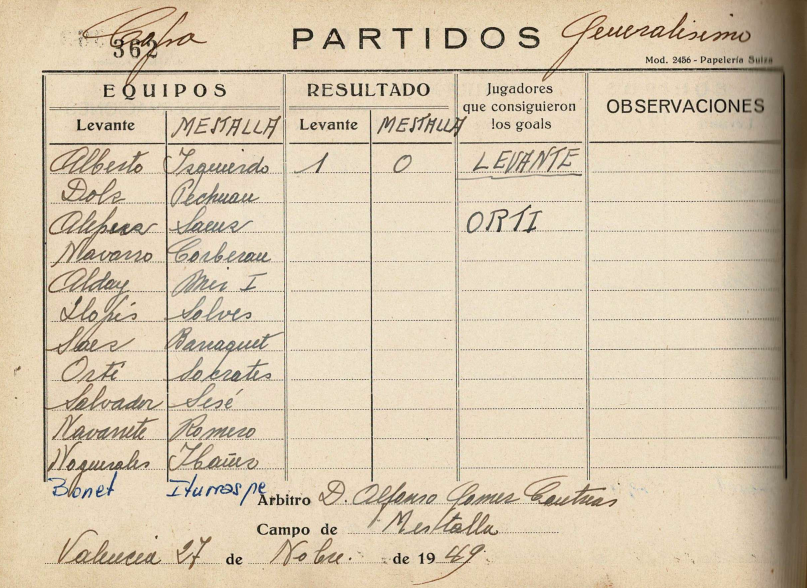 Copa PARTIDOS Generalisimo
362
Mod. 2456 - Papelería Suiza
EQUIPOS RESULTADO Jugadores que consiguieron los goals OBSERVACIONES
Levante MESTALLA Levante MESTALLA
Alberto Izquierdo 1 0 LEVANTE
Dols Pechuan
Saenz ORTI
Navarro Corberan
Alday Mir I
Llopis Solves
Saez Barraquet
Orti Socrates
Salvador Sesé
Navarrete Romero
Noguerales Ibañez
Bonet Iturraspe
Arbitro D. Alfonso Gomez Contreas
Campo de Mestalla
Valencia 27 de Nobre. de 1949